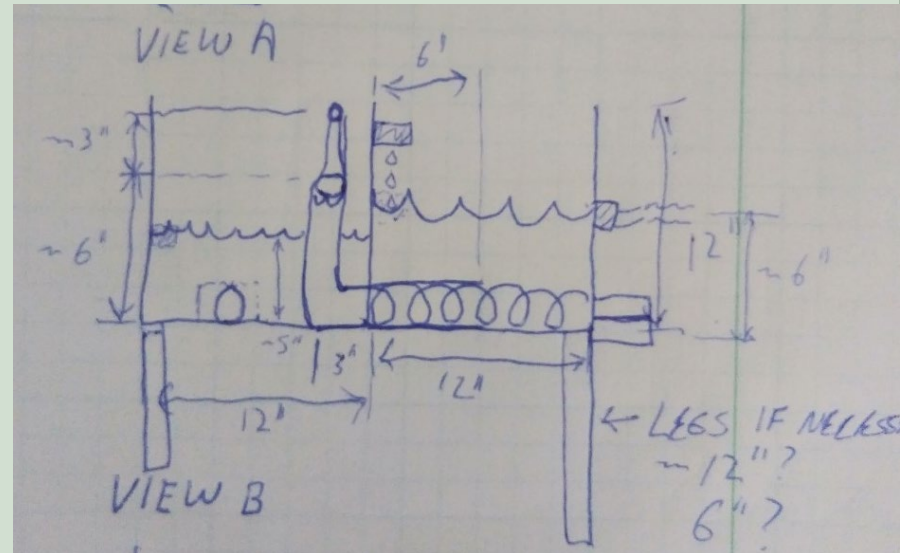 VIEW A
6'
~3"
~6"
12"
~6"
~5"
3"
12"
12"
← LEGS IF NECESS
~12"?
6"?
VIEW B